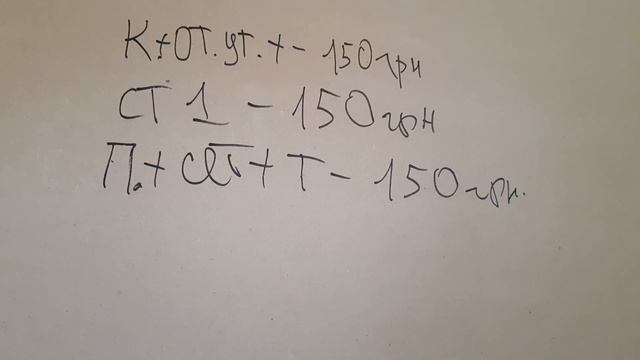 К+ОТ.УТ.+ - 150грн
СТ 1 - 150грн
П.+ +Т - 150грн.